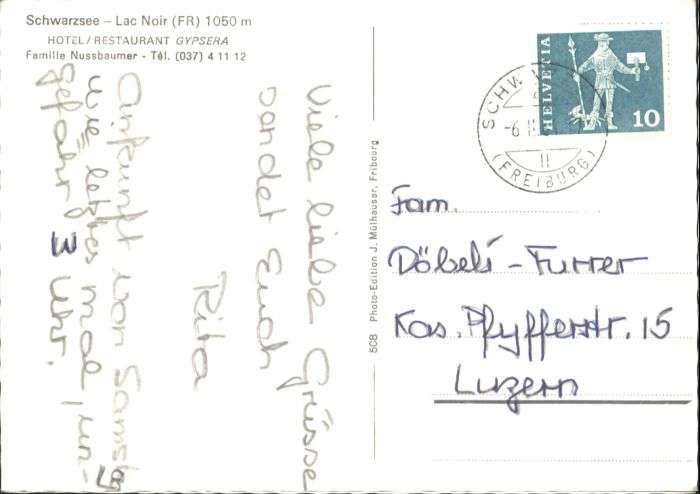 Schwarzsee – Lac Noir (FR) 1050 m
HOTEL/RESTAURANT GYPSERA
Famille Nussbaumer - Tél. (037) 4 11 12
Viele liebe Grüsse
sendet Euch
Rita
Ankunft von Samstag
wie letztes mal, un-
gefähr 3 Uhr.
508 Photo-Edition J. Mülhauser, Fribourg
HELVETIA
10
SCHW
-6.
(FREIBURG)
Fam.
Döbeli - Furrer
Kas. Pfyfferstr. 15
Luzern